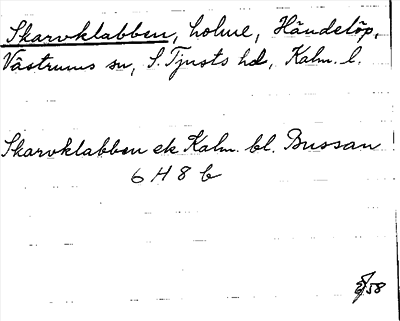 Skarvklabben, holme, Händelöp,
Västrums sn, S. Tjusts hd, Kalm. l.
Skarvklabben ek Kalm. bl. Bussan
6 H 8 b
58